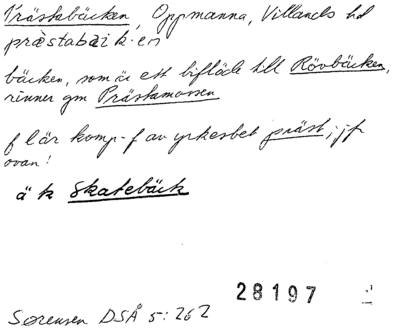 Prästabäcken, Oppmanna, Villands hd
præstabækʹen
bäcken, som är ett biflöde till Rövbäcken,
rinner gm Prästamossen
f l är komp-f av yrkesbet präst; jfr
ovan!
ä k Skatebäck
28197
Sørensen DSÅ 5:262